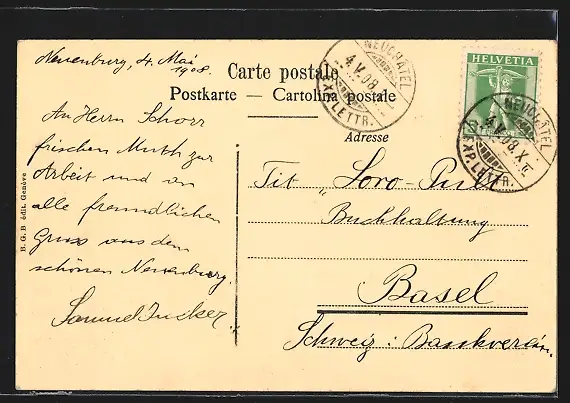 Neuenburg, 4. Mai
1908.
Carte postale
Postkarte — Cartolina postale
Adresse
NEUCHÂTEL
4.V.08
EXP. LETTR.
HELVETIA
NEUCHÂTEL
4.V.08.X
EXP. LETTR.
An Herrn Schorr
frischen Muth zur
Arbeit und an
alle freundlichen
Gruss aus dem
schönen Neuenburg.
Samuel
Tit.
Buchhaltung
Basel
Schweiz: Bankverein.
B. G. B édit. Genève